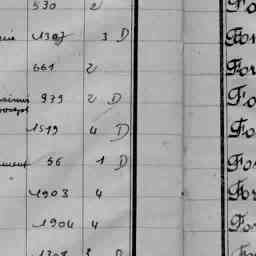 530 2 Fo
1307 3 D For
661 2 For
879 2 D Fo
1519 4 D Fo
56 1 D For
1903 4 For
1904 4 For